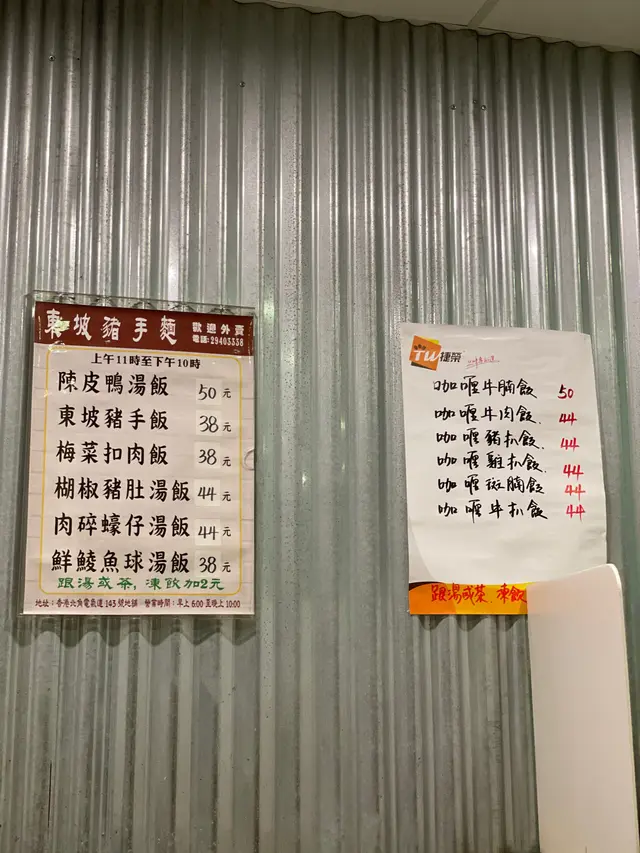 東坡豬手麵
歡迎外賣
電話:29403338
上午11時至下午10時
陳皮鴨湯飯 50元
東坡豬手飯 38元
梅菜扣肉飯 38元
糊椒豬肚湯飯 44元
肉碎蠔仔湯飯 44元
鮮鯪魚球湯飯 38元
跟湯或茶,凍飲加2元
地址:香港北角電氣道143號地舖 營業時間:早上6:00至晚上10:00
TW捷榮
咖喱牛腩飯 50
咖喱牛肉飯 44
咖喱豬扒飯 44
咖喱雞扒飯 44
咖喱斑腩飯 44
咖喱牛扒飯 44
跟湯或茶,凍飲